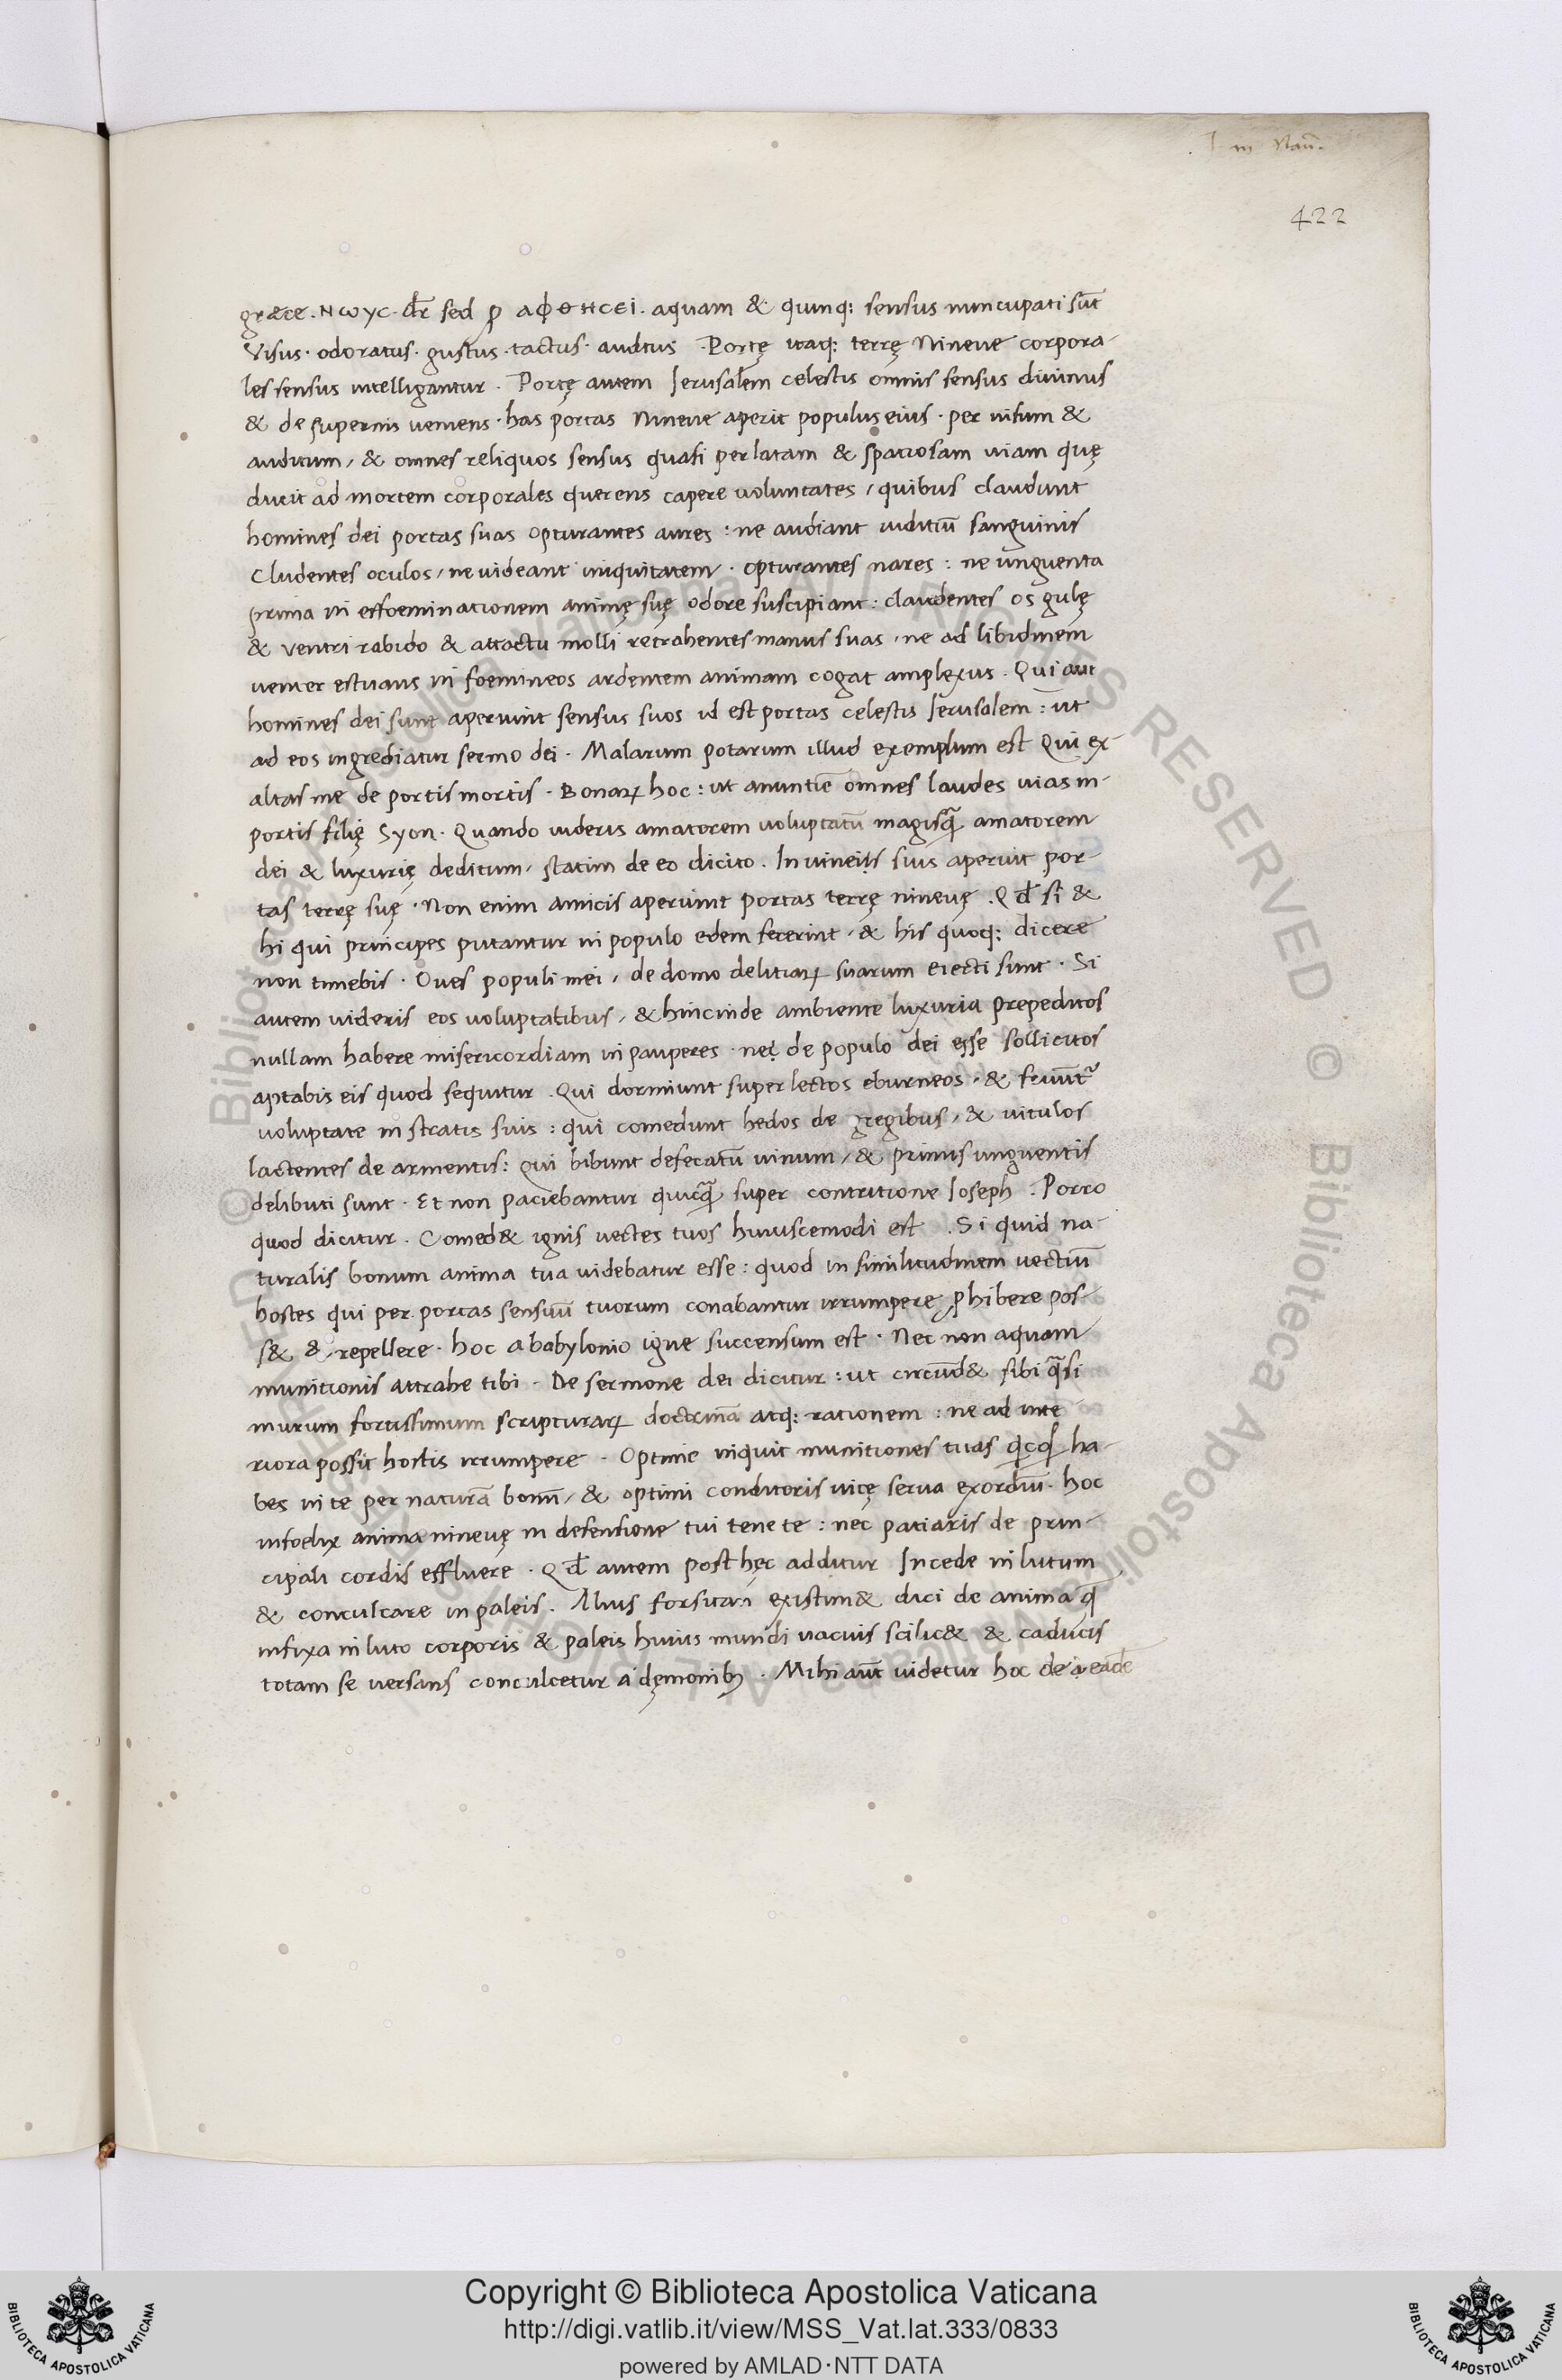 . I in Naū.
422
græce . Νωγς . dr̄ sed ꝓ αφθησει . aquam & quinq; sensus nuncupati sūt
Visus . odoratus . gustus . tactus . auditus . Portę itaq; terrę Nineue corpora-
les sensus intelligantur . Portę autem Jerusalem celestis omnis sensus diuinus
& de supernis ueniens . has portas Nineue aperit populus eius . per uisum &
auditum / & omnes reliquos sensus quasi per latam & spatiosam uiam quę
ducit ad mortem corporales querens capere uoluntates / quibus claudunt
homines dei portas suas opturantes aures : ne audiant iuditiū sanguinis
Cludentes oculos / ne uideant iniquitatem . opturantes nares : ne unguenta
prima in effoeminationem animę suę odore suscipiant : claudentes os gulę
& ventri rabido & attactu molli retrahentes manus suas . ne ad libidinem
uenter estuans in foemineos ardentem animam cogat amplexus . Qui aut
homines dei sunt aperiunt sensus suos id est portas celestis Jerusalem : ut
ad eos ingrediatur sermo dei . Malarum potarum illud exemplum est Qui ex-
altas me de portis mortis . Bonaꝝ hoc : ut anuntiē omnes laudes uias in
portis filię Syon . Quando uideris amatorem voluptatū magisꝗ̄ amatorem
dei & luxurię deditum / statim de eo dicito . In uineis suis aperuit por-
tas terrę suę . Non enim amicis aperiunt portas terrę nineuę . Qđ si &
hi qui principes putantur in populo edem fecerint / & his quoq; dicere
non timebis . Oues populi mei / de domo delitiaꝝ suarum eiecti sunt . Si
autem uideris eos uoluptatibus / & hincinde ambiente luxuria prepeditos
nullam habere misericordiam in pauperes . nec de populo dei esse sollicitos
aptabis eis quod sequitur . Qui dormiunt super lectos eburneos . & fruūt᷑
voluptate in stratis suis : qui comedunt hedos de gregibus / & vitulos
lactentes de armentis : qui bibunt defecatū uinum / & primis unguentis
delibuti sunt . Et non patiebantur quicꝗ̄ super contritione Joseph . Porro
quod dicitur . Comed& ignis vectes tuos huiuscemodi est . Si quid na-
turalis bonum anima tua uidebatur esse : quod in similitudinem uectiū
hostes qui per portas sensuū tuorum conabantur irrumpere ꝓhibere pos-
s& & repellere . hoc a babylonio igne succensum est . Nec non aquam
munitionis attrahe tibi . De sermone dei dicitur : ut circūd& sibi ꝗ̄si
murum fortissimum scripturaꝝ doctrinā atq; rationem : ne ad inte
riora possit hostis irrumpere . Optime inquit munitiones tuas ꝗcꝗd ha-
bes in te per naturā bonū / & optimi conditoris vicę serua exordiū . hoc
infoelix anima nineuę in defensione tui tene te : nec patiaris de prin-
cipali cordis effluere . Qđ autem post hęc additur Incede in lutum
& conculcare in paleis . Alius forsitan existim& dici de anima ꝗ̄
infixa in luto corporis & paleis huius mundi uacuis scilic& & caducis
totam se uersans conculcetur a dęmonibꝫ . Mihi aūt uidetur hoc de eadē
Copyright © Biblioteca Apostolica Vaticana
http://digi.vatlib.it/view/MSS_Vat.lat.333/0833
powered by AMLAD·NTT DATA